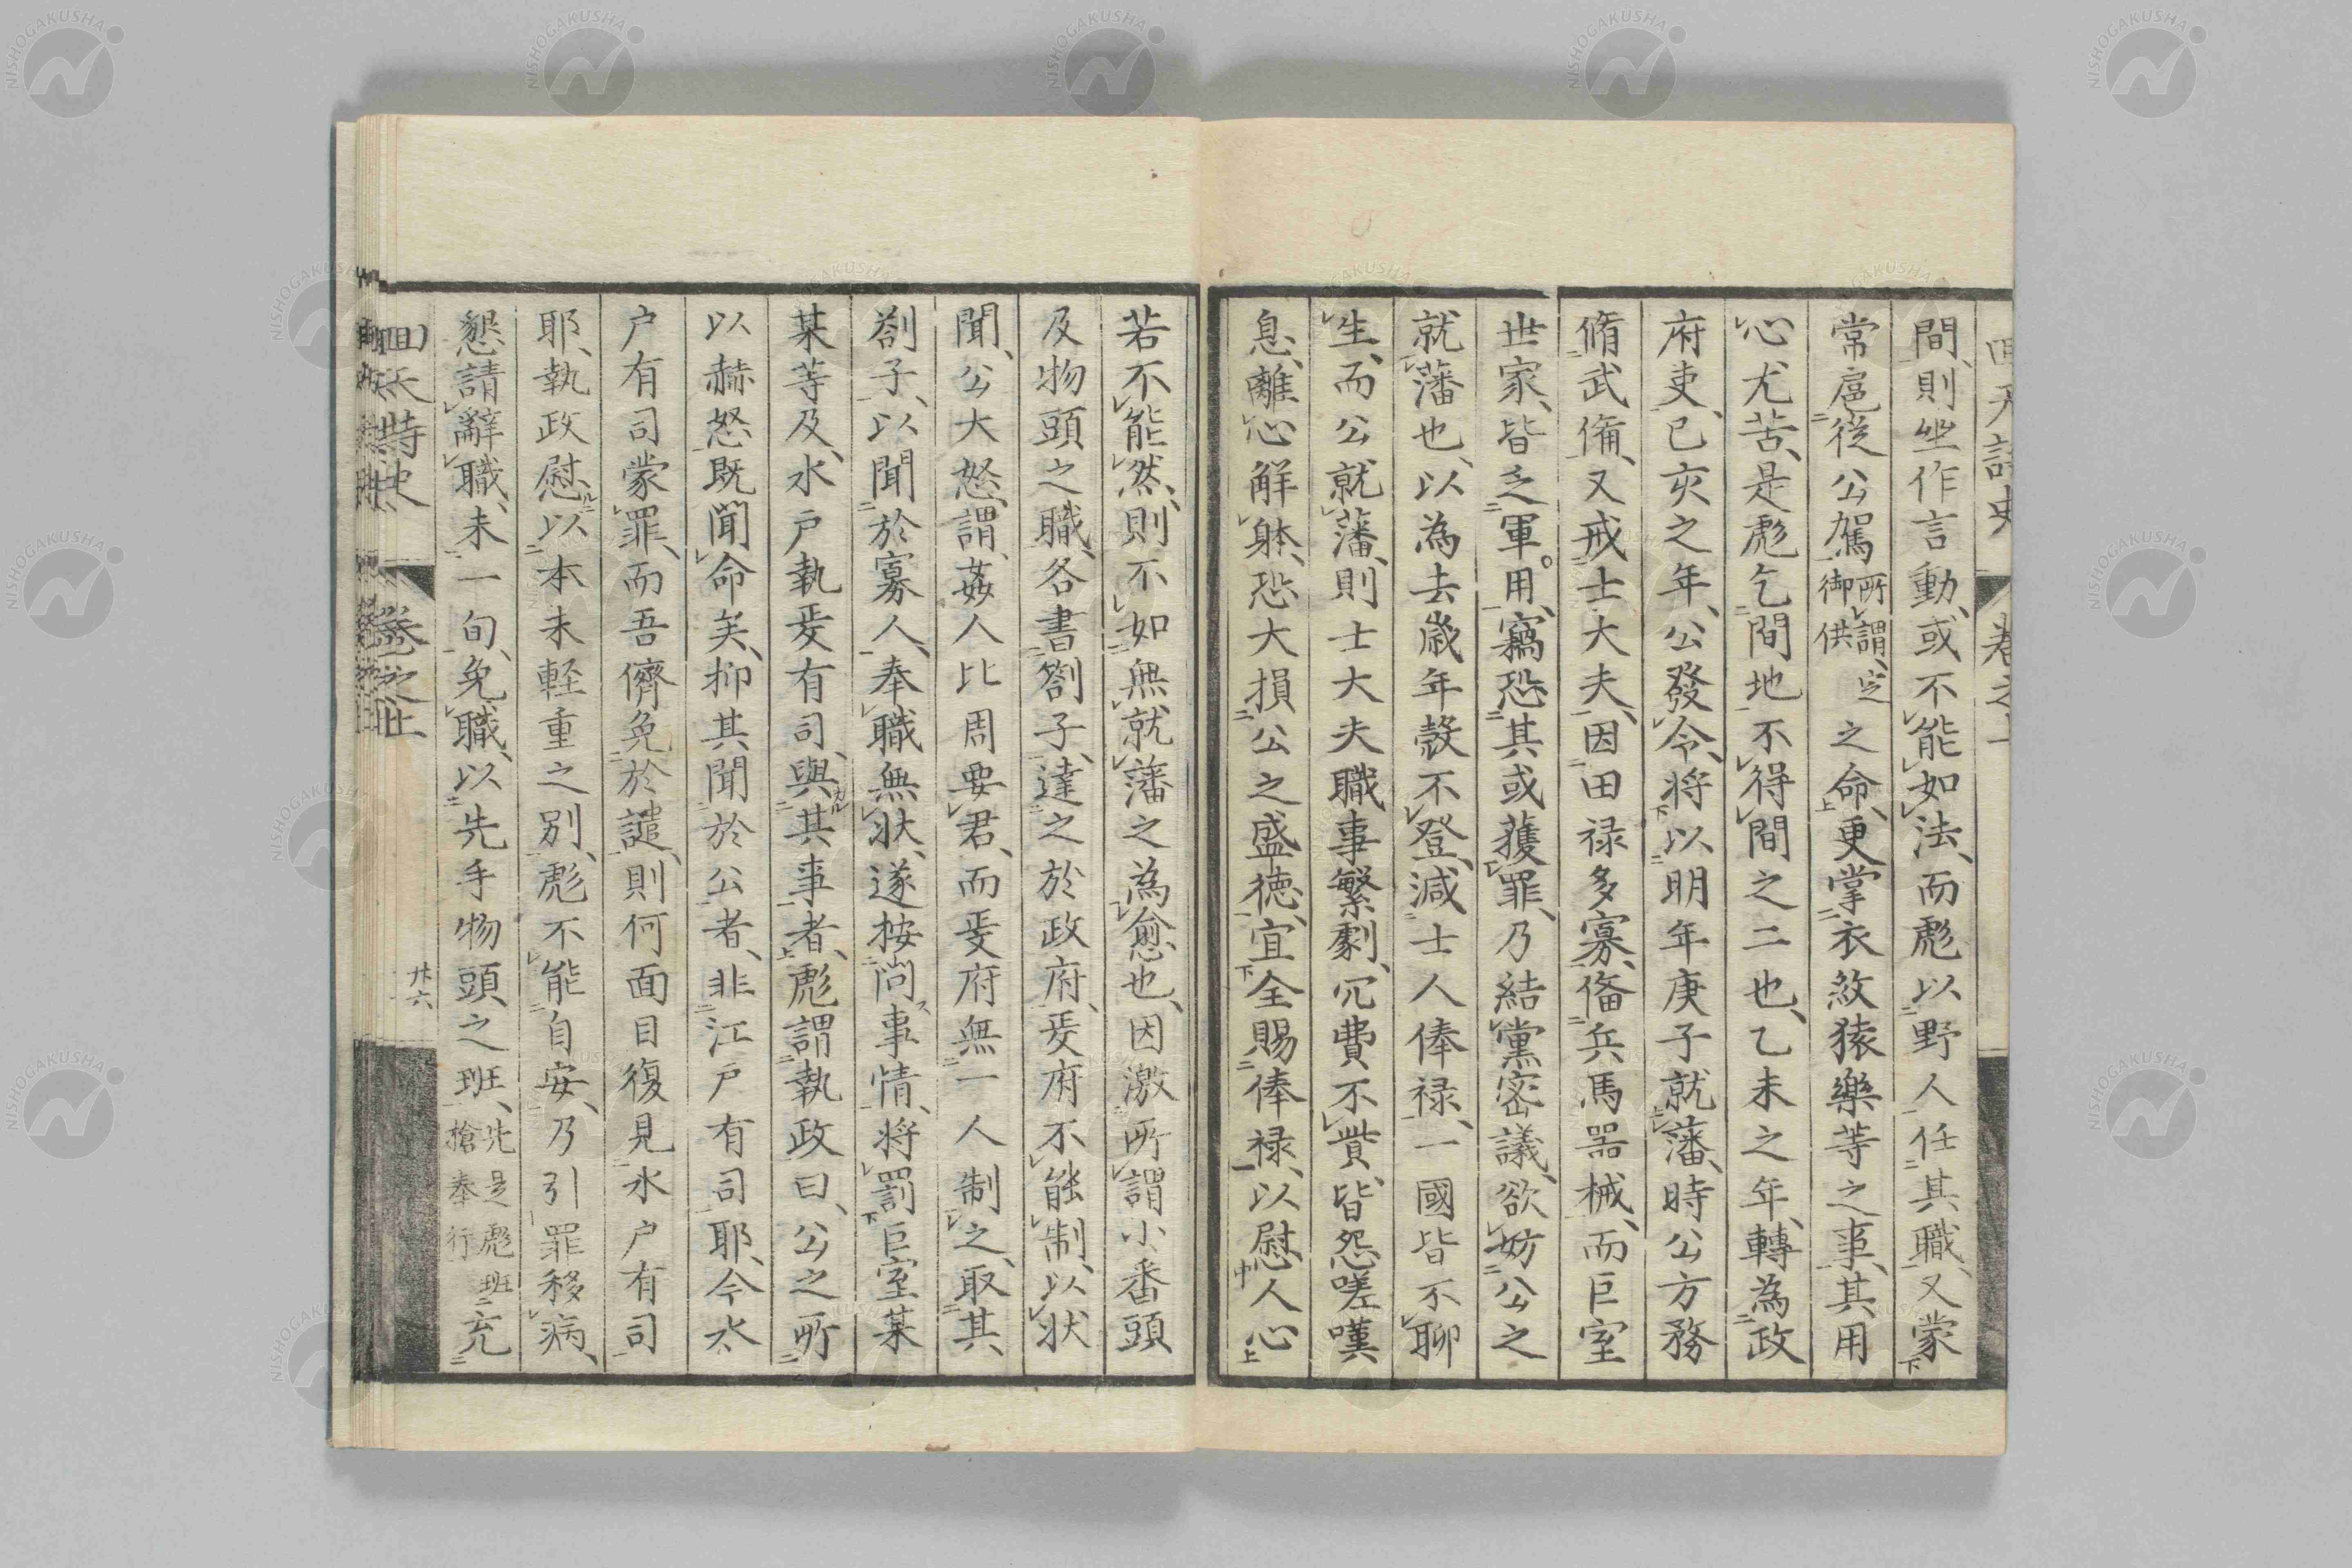 間、則坐作言動、或不能如法、而彪以野人任其職、又蒙
常扈從公駕所謂定御供之命、更掌衣紋猿樂等之事、其用
心尤苦、是彪乞間地不得間之二也、乙未之年、轉為政
府吏、已亥之年、公發令、將以明年庚子就藩、時公方務
脩武備、又戒士大夫、因田禄多寡、俻兵馬器械、而巨室
世家、皆乏軍用、竊恐其或蒦罪、乃結黨密議、欲妨公之
就藩也、以為去歳年穀不登、減士人俸禄、一國皆不聊
生、而公就藩、則士大夫職事繁劇、冗費不貲、皆怨嗟嘆
息、離心解躰、恐大損公之盛徳、宜全賜俸禄、以慰人心
若不能然、則不如無就藩之為愈也、因激所謂小番頭
及物頭之職、各書劄子、達之於政府、爰府不能制、以状
聞、公大怒、謂、姦人比周要君、而爰府無一人制之、取其
劄子、以聞於寡人、奉職無状、遂按問事情、將罰巨室某
某等及水戸執爰有司、與其事者、彪謂執政曰、公之所
以赫怒既聞命矣、抑其聞於公者、非江戸有司耶、今水
戸有司蒙罪、而吾儕免於譴、則何面目復見水戸有司
耶、執政慰以本末軽重之別、彪不能自安、乃引罪移病、
懇請辭職、未一旬、免職、以先手物頭之班、先是彪班槍奉行充
回天詩史
卷之上
廿六